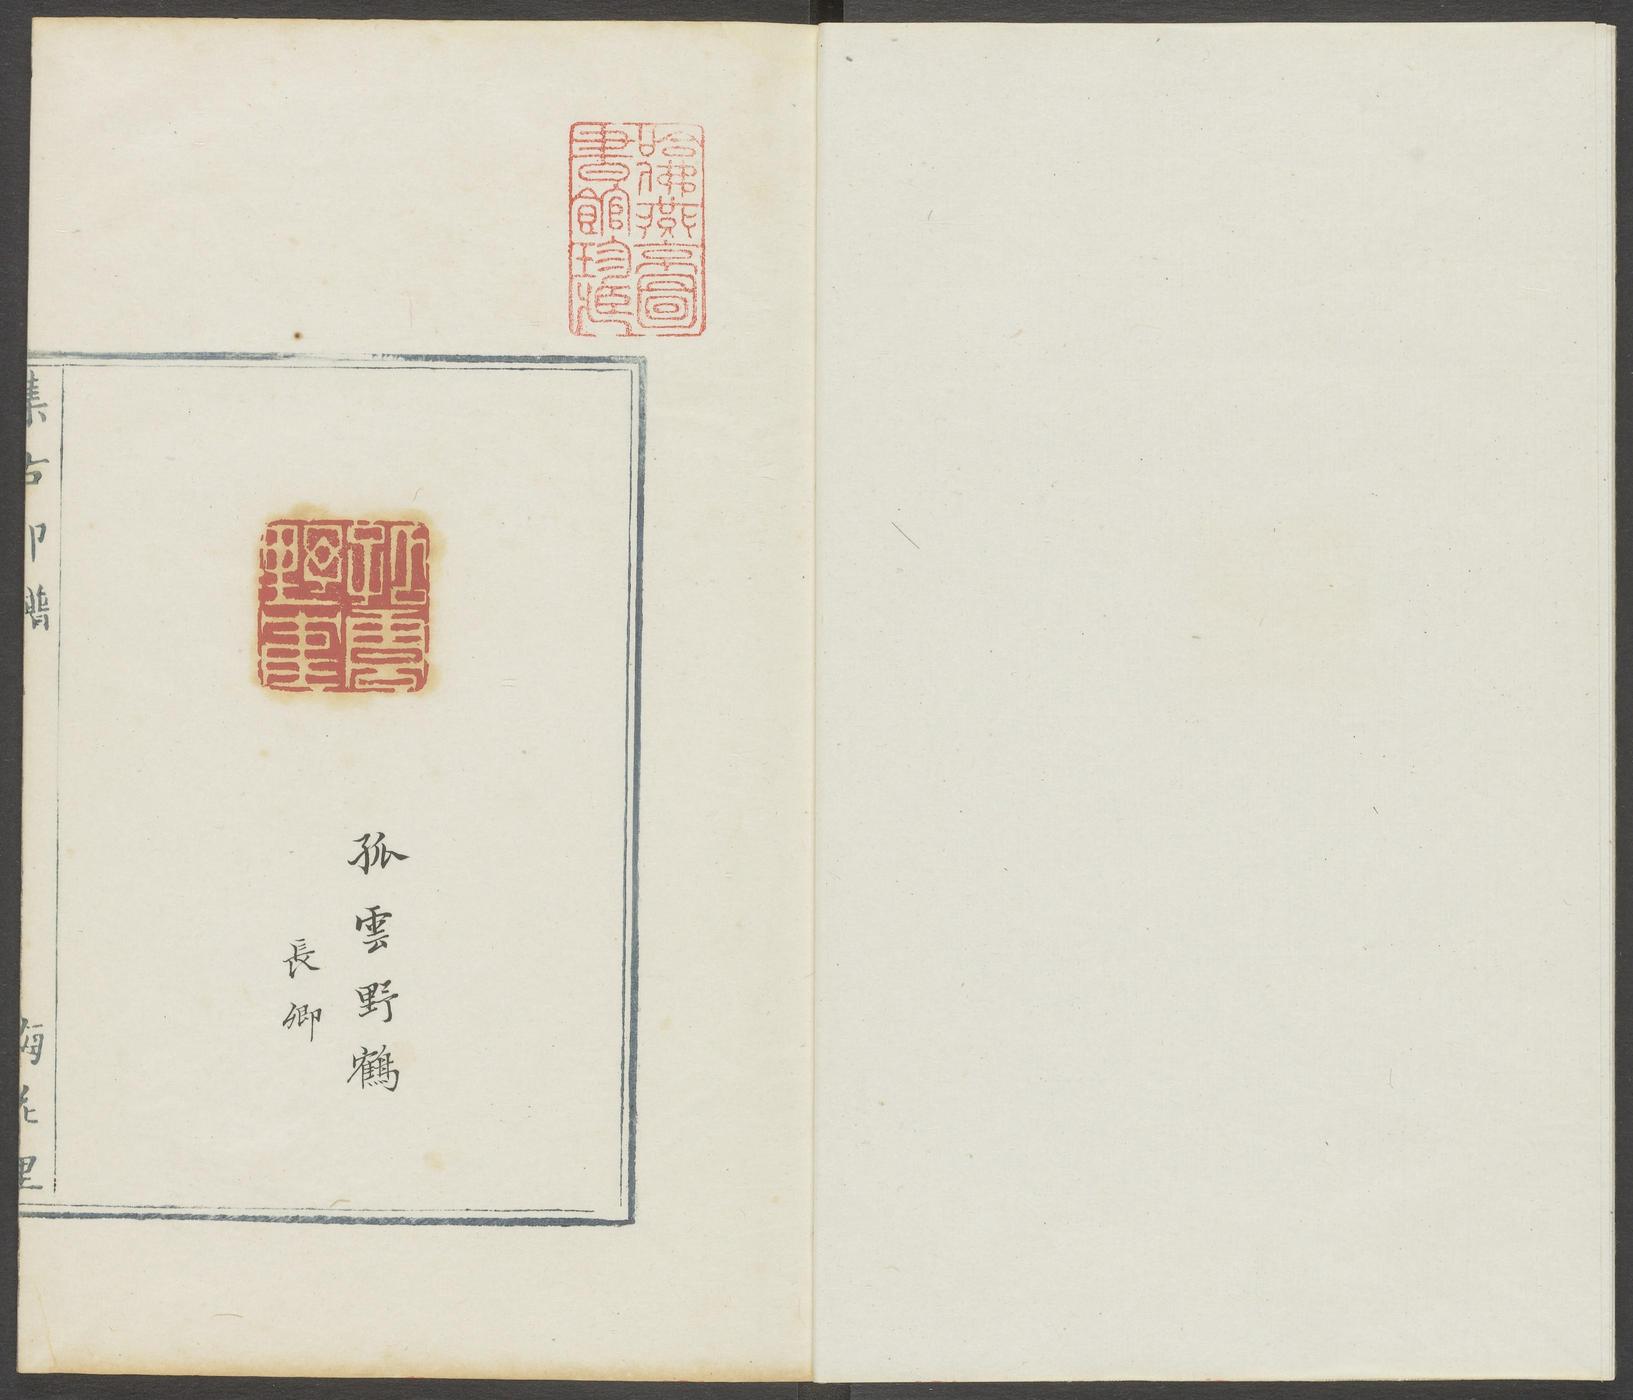 哈佛燕京圖
書館珍藏
孤雲野鶴
孤雲野鶴
長卿
集古印譜
梅花里